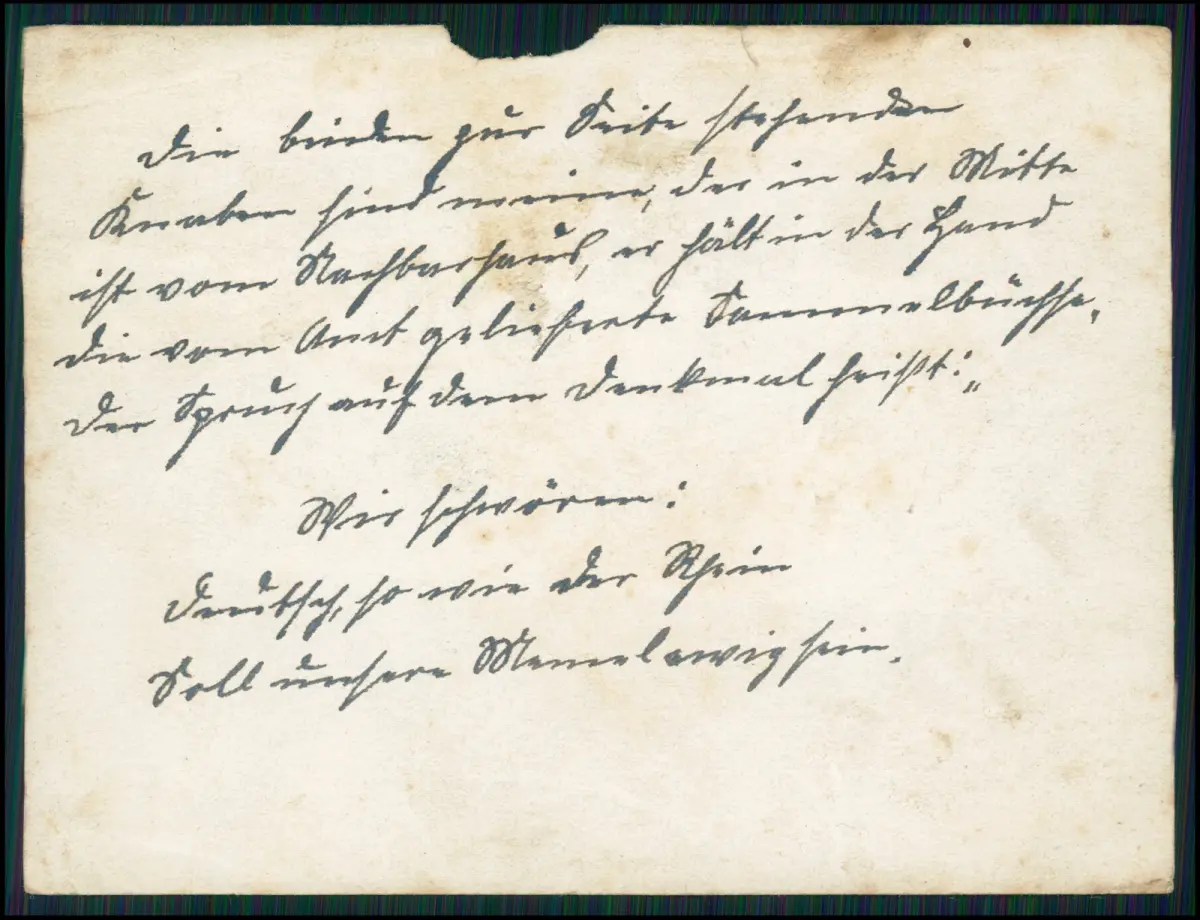 Die beiden zur Seite stehenden
Knaben sind meine, der in der Mitte
ist vom Nachbarhaus, er hält in der Hand
die vom Amt gelieferte Sammelbüchse.
Der Spruch auf dem Denkmal heißt: „
Wir schwören:
Deutsch, so wie der Rhein
Soll unsere Memel ewig sein.